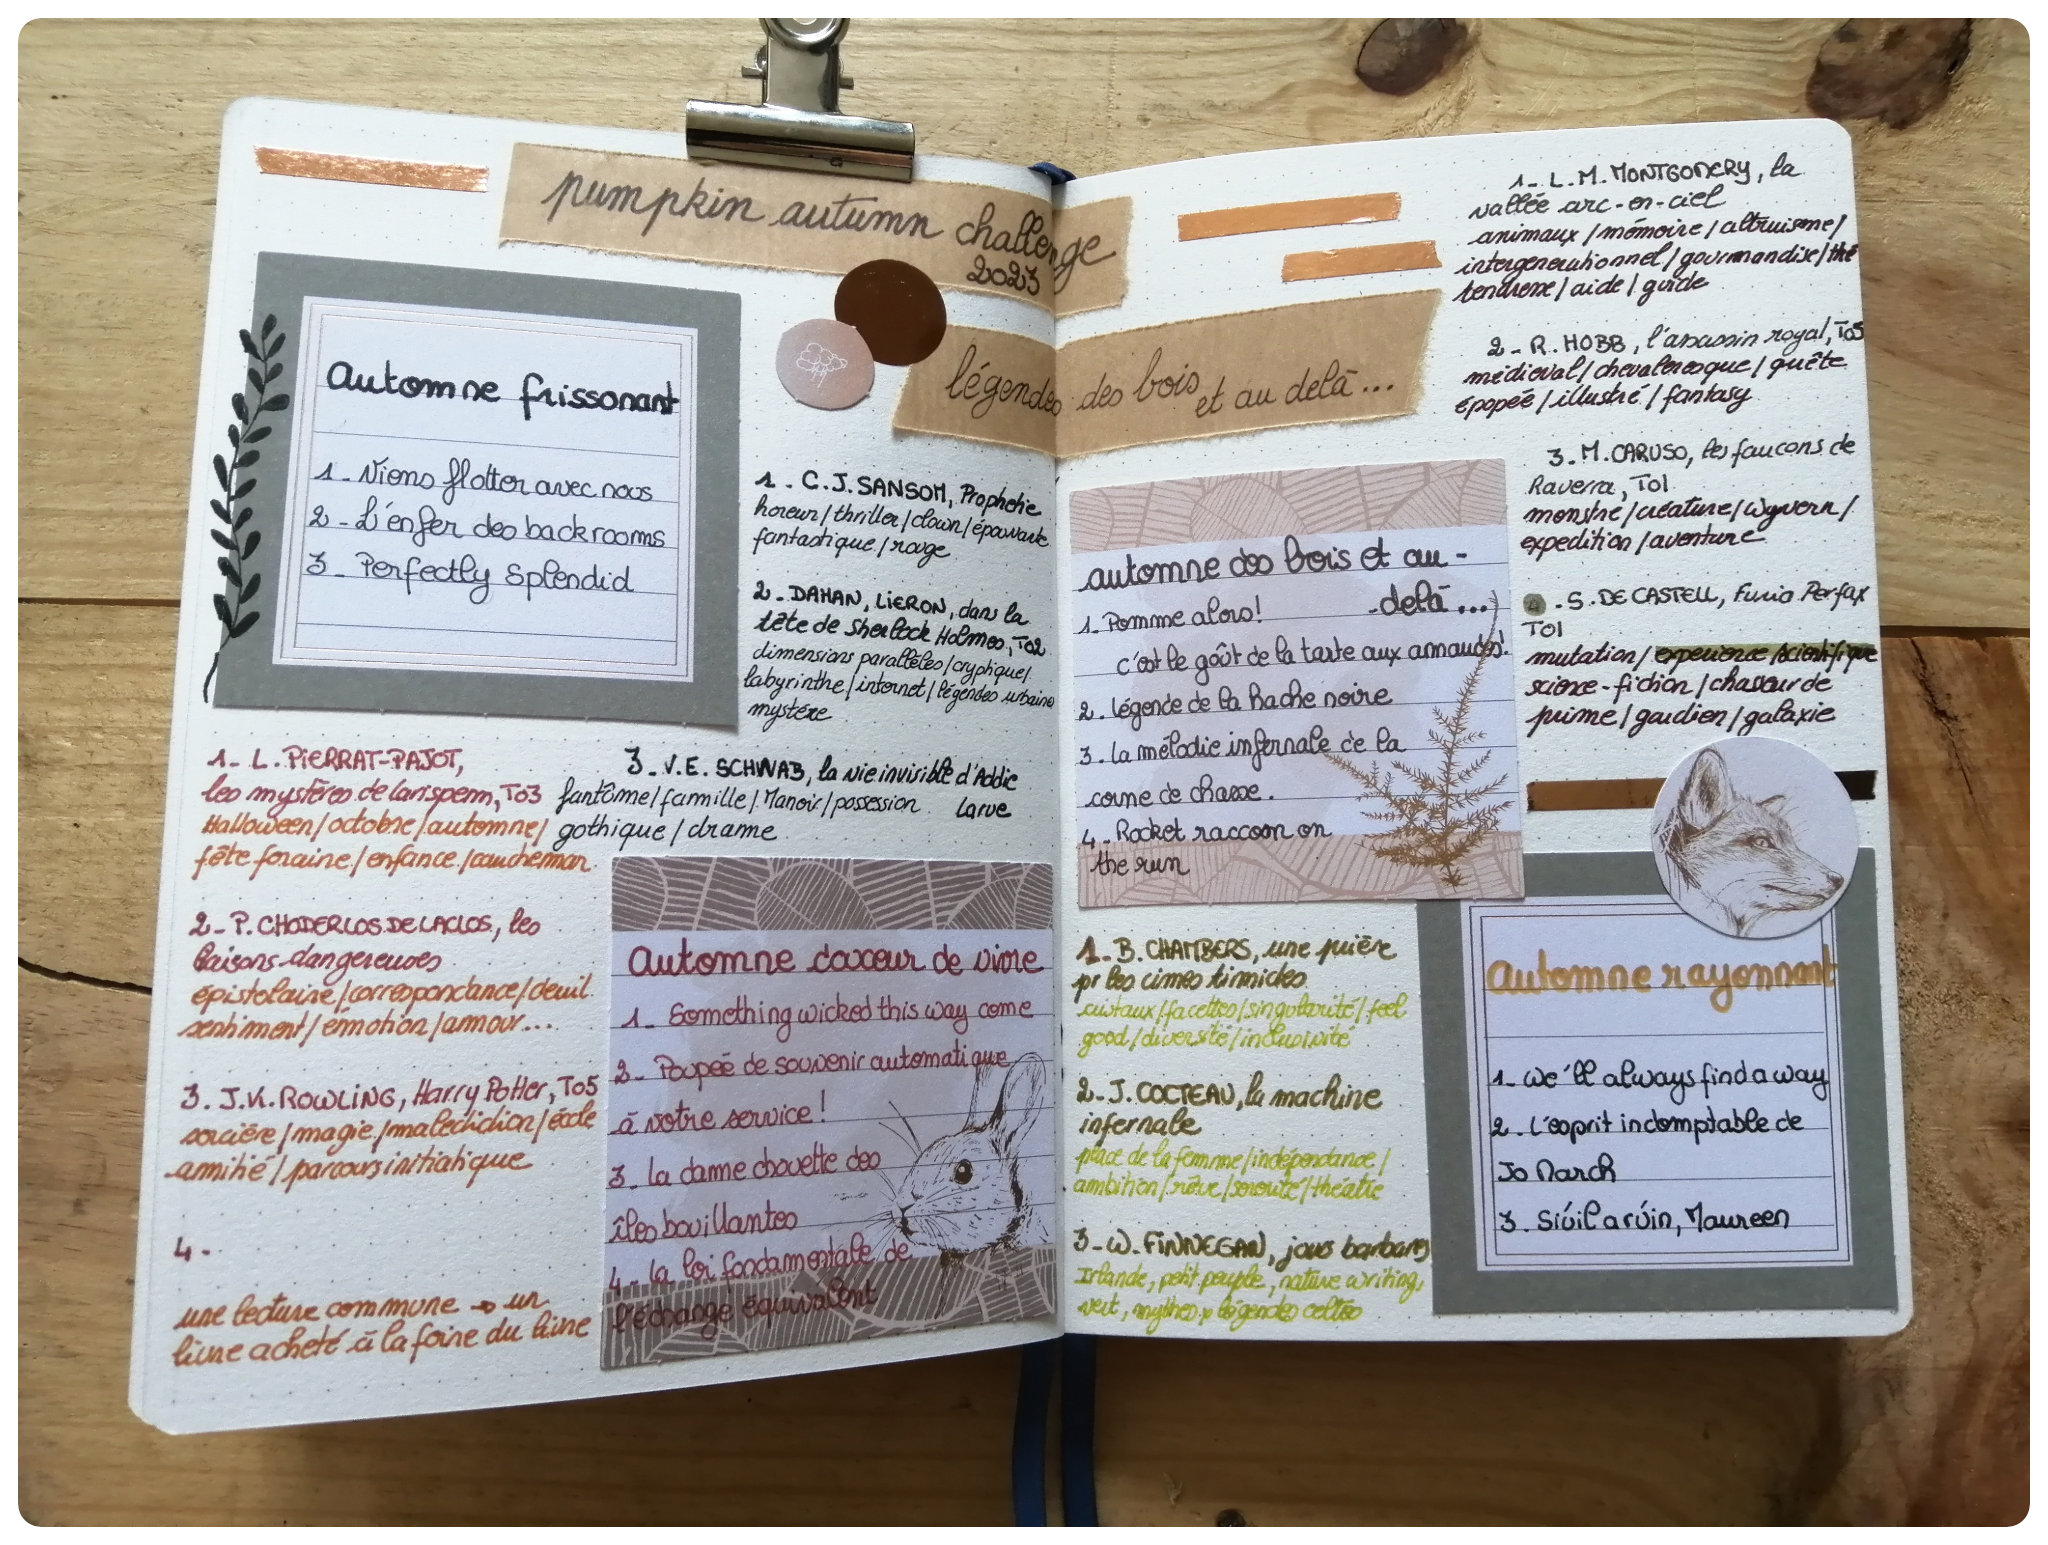 pumpkin autumn challenge
2023
légendes des bois
et au delà...
Automne frissonant
1 - Viens flotter avec nous
2 - L'enfer des backrooms
3 - Perfectly Splendid
1 - C. J. SANSOM, Prophetie
horreur / thriller / clown / épouvante
fantastique / rouge
2 - DAHAN, LIERON, dans la
tête de Sherlock Holmes, To2
dimensions parallèles / cryptique /
labyrinthe / internet / légendes urbaines
mystère
3 - V. E. SCHWAB, la vie invisible d'Addie
Larue
fantôme / famille / Manoir / possession
gothique / drame
1 - L. PIERRAT-PAJOT,
les mystères de larispem, To3
Halloween / octobre / automne /
fête foraine / enfance / cauchemar
2 - P. CHODERLOS DE LACLOS, les
liaisons dangereuses
épistolaire / correspondance / deuil
sentiment / émotion / amour...
3. J.K. ROWLING, Harry Potter, To5
sorcière / magie / malédiction / école
amitié / parcours initiatique
4 -
une lecture commune → un
livre acheté à la foire du livre
Automne douceur de vivre
1 - Something wicked this way come
2 - Poupée de souvenir automatique
à votre service !
3. la dame chouette des
îles bouillantes
4 - la loi fondamentale de
l'échange équivalent
automne des bois et au -
- delà...
1. Pomme alors !
c'est le goût de la tarte aux amaudes !
2. légende de la hache noire
3. la mélodie infernale de la
corne de chasse.
4. Rocket raccoon on
the run
1 - L. M. MONTGOMERY, la
vallée arc-en-ciel
animaux / mémoire / altruisme /
intergenerationnel / gourmandise / thé
tendresse / aide / guide
2 - R. HOBB, l'assassin royal, To5
médieval / chevaleresque / quête
épopée / illustré / fantasy
3 - M. CARUSO, les faucons de
Raverra, To1
monstre / créature / wyvern /
expedition / aventure
4 - S. DE CASTELL, Furia Perfax
To1
mutation / experience / scientifique
science-fiction / chasseur de
prime / gardien / galaxie
1 - B. CHAMBERS, une prière
pr les cimes timides
cristaux / facettes / singularité / feel
good / diversité / inclusivité
2 - J. COCTEAU, la machine
infernale
place de la femme / indépendance /
ambition / rêve / sororité / théatre
3 - W. FINNEGAN, jours barbares
Irlande, petit peuple, nature writing,
vert, mythes & légendes celtes
automne rayonnant
1 - we'll always find a way
2. L'esprit indomptable de
Jo March
3. Siúil a rúin, Maureen